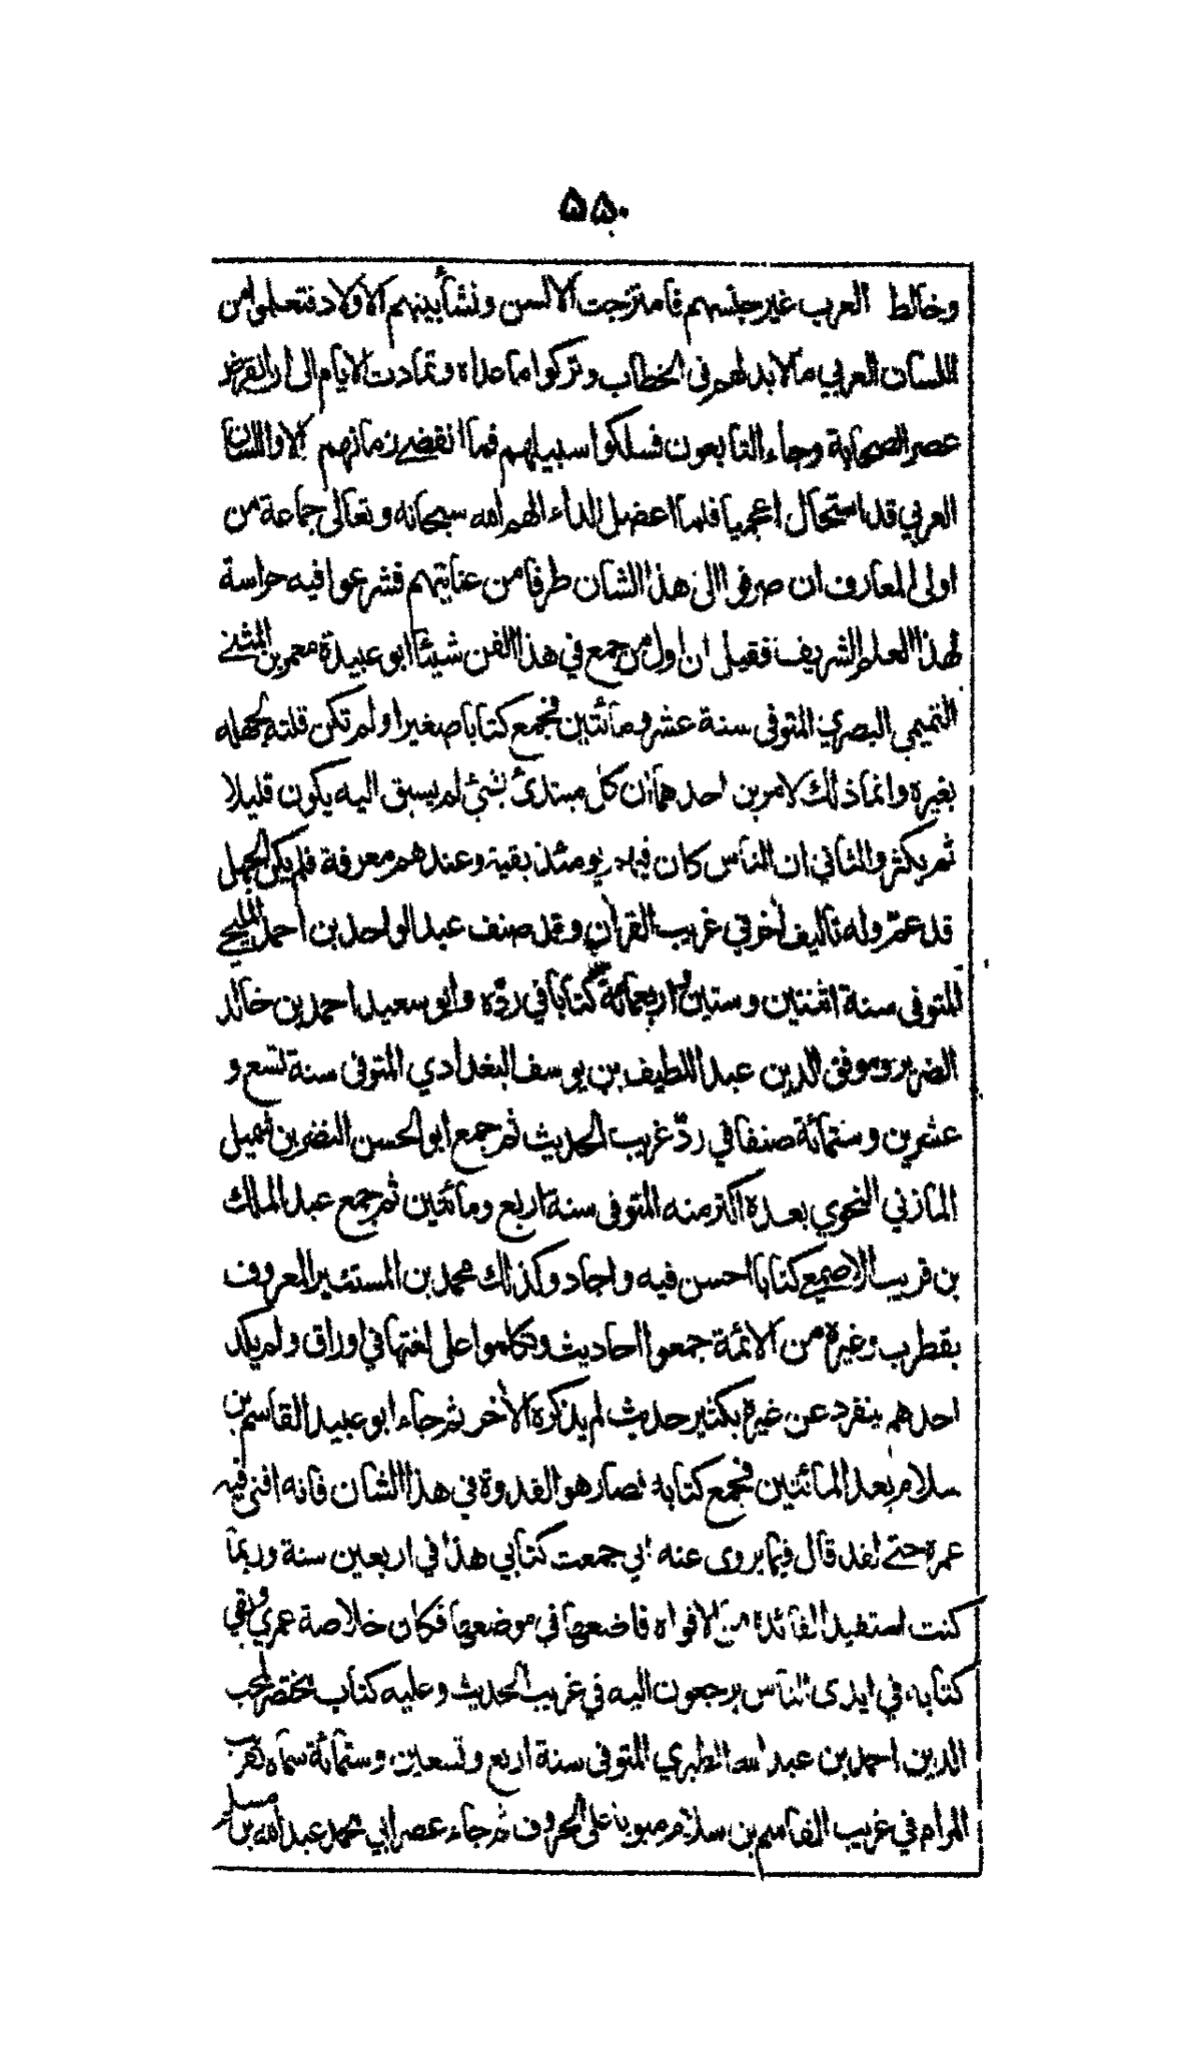 ۵۵۰
وخالط العرب غير جنسهم فامتزجت الالسن ونشأ بينهم الاولاد فتعلموا من
اللسان العربي مالا بد لهم في الخطاب وتركوا ما عداه وتمادت الايام الى ان انقرض
عصر الصحابة وجاء التابعون فسلكوا سبيلهم فما انقضى زمانهم الا واللسان
العربي قد استحال اعجميا فلما اعضل الداء الهم الله سبحانه وتعالى جماعة من
اولى المعارف ان صرفوا الى هذا الشان طرفا من عنايتهم فشرعوا فيه حراسة
لهذا العلم الشريف فقيل ان اول من جمع في هذا الفن شيئا ابو عبيدة معمر بن المثنى
التميمي البصري المتوفى سنة عشر ومائتين فجمع كتابا صغيرا ولم تكن قلته لجهله
بغيره وانما ذلك لامرين احدهما ان كل مبتدئ بشئ لم يسبق اليه يكون قليلا
ثم يكثر والثاني ان الناس كان فيهم يومئذ بقية وعندهم معرفة فلم يكن الجهل
قد عمّ وله تاليف أخر في غريب القرأن وقد صنف عبد الواحد بن احمد المليحي
المتوفى سنة اثنتين وستين واربعمائة كتابا في ردّه وابو سعيد احمد بن خالد
الضرير وموفق الدين عبد اللطيف بن يوسف البغدادي المتوفى سنة تسع و
عشرين وستمائة صنفا في ردّ غريب الحديث ثم جمع ابو الحسن النضر بن شميل
المازني النحوي بعده اكثر منه المتوفى سنة اربع ومائتين ثم جمع عبد الملك
بن قريب الاصمعي كتابا احسن فيه واجاد وكذلك محمد بن المستنير المعروف
بقطرب وغيره من الائمة جمعوا احاديث وتكلموا على لغتها في اوراق ولم يكد
احدهم ينفرد عن غيره بكثير حديث لم يذكره الأخر ثم جاء ابو عبيد القاسم بن
سلام بعد المائتين فجمع كتابه فصار هو القدوة في هذا الشان فانه افنى فيه
عمره حتى لقد قال فيما يروى عنه اني جمعت كتابي هذا في اربعين سنة وربما
كنت استفيد الفائدة من الافواه فاضعها في موضعها فكان خلاصة عمري وبقي
كتابه في ايدى الناس يرجعون اليه في غريب الحديث وعليه كتاب مختصر لمحب
الدين احمد بن عبد الله الطبري المتوفى سنة اربع وتسعين وستمائة سماه تقريب
المرام في غريب القاسم بن سلام مبوبا على الحروف ثم جاء عصر ابي محمد عبد الله بن مسلم